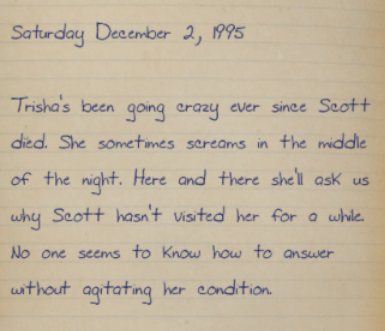 Saturday December 2, 1995
Trisha's been going crazy ever since Scott
died. She sometimes screams in the middle
of the night. Here and there she'll ask us
why Scott hasn't visited her for a while.
No one seems to know how to answer
without agitating her condition.